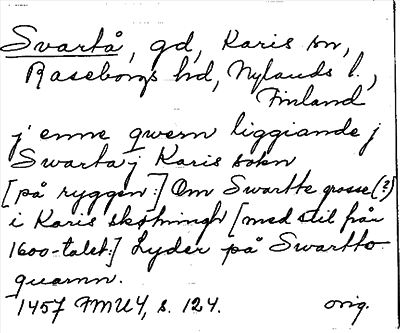 Svartå, gd, Karis sn,
Raseborgs hd, Nylands l.,
Finland
j enne qwern liggiande j
Swarta j Karis sokn
[på ryggen:] Om Swartte grosse(?)
i Karis skötningh [med stil från
1600-talet:] Lyder på Swartto
quarnn.
1457 FMU 4, s. 124. orig.